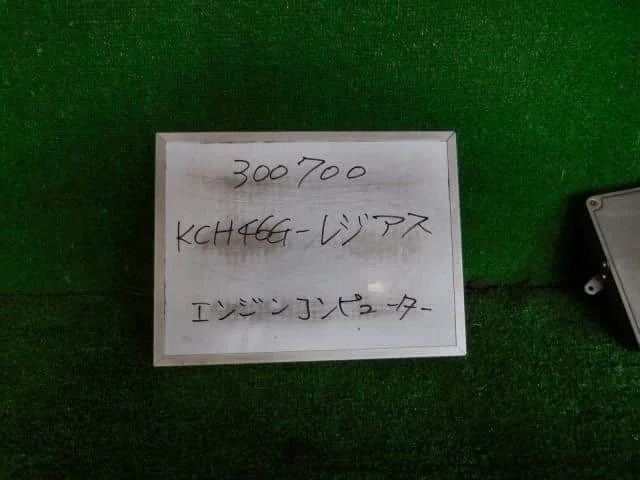 300700
KCH46G-レジアス
エンジンコンピューター